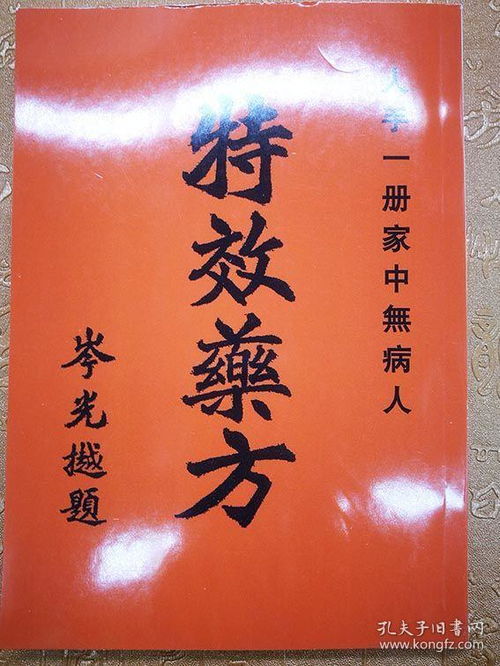 人手一册家中無病人
特效藥方
岑光樾題
孔夫子旧書网
www.kongfz.com